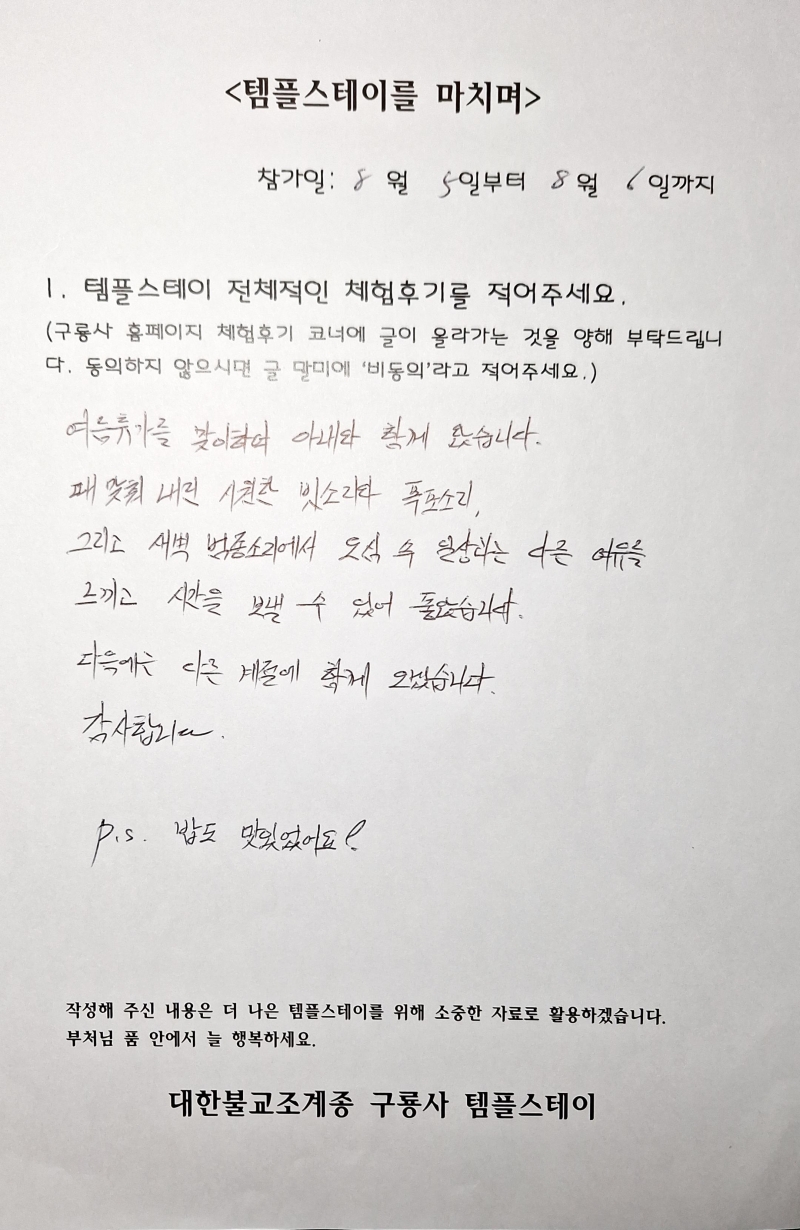 <템플스테이를 마치며>
참가일: 8 월 5일부터 8월 6일까지
1. 템플스테이 전체적인 체험후기를 적어주세요.
(구룡사 홈페이지 체험후기 코너에 글이 올라가는 것을 양해 부탁드립니
다. 동의하지 않으시면 글 말미에 '비동의'라고 적어주세요.)
여름휴가를 맞이하여 아내와 함께 왔습니다.
때 맞춰 내린 시원한 빗소리와 폭포소리,
그리고 새벽 범종소리에서 도심 속 일상과는 다른 여유를
느끼고 시간을 보낼 수 있어 좋았습니다.
다음에는 다른 계절에 함께 오겠습니다.
감사합니다.
p.s. 밥도 맛있었어요!
작성해 주신 내용은 더 나은 템플스테이를 위해 소중한 자료로 활용하겠습니다.
부처님 품 안에서 늘 행복하세요.
대한불교조계종 구룡사 템플스테이